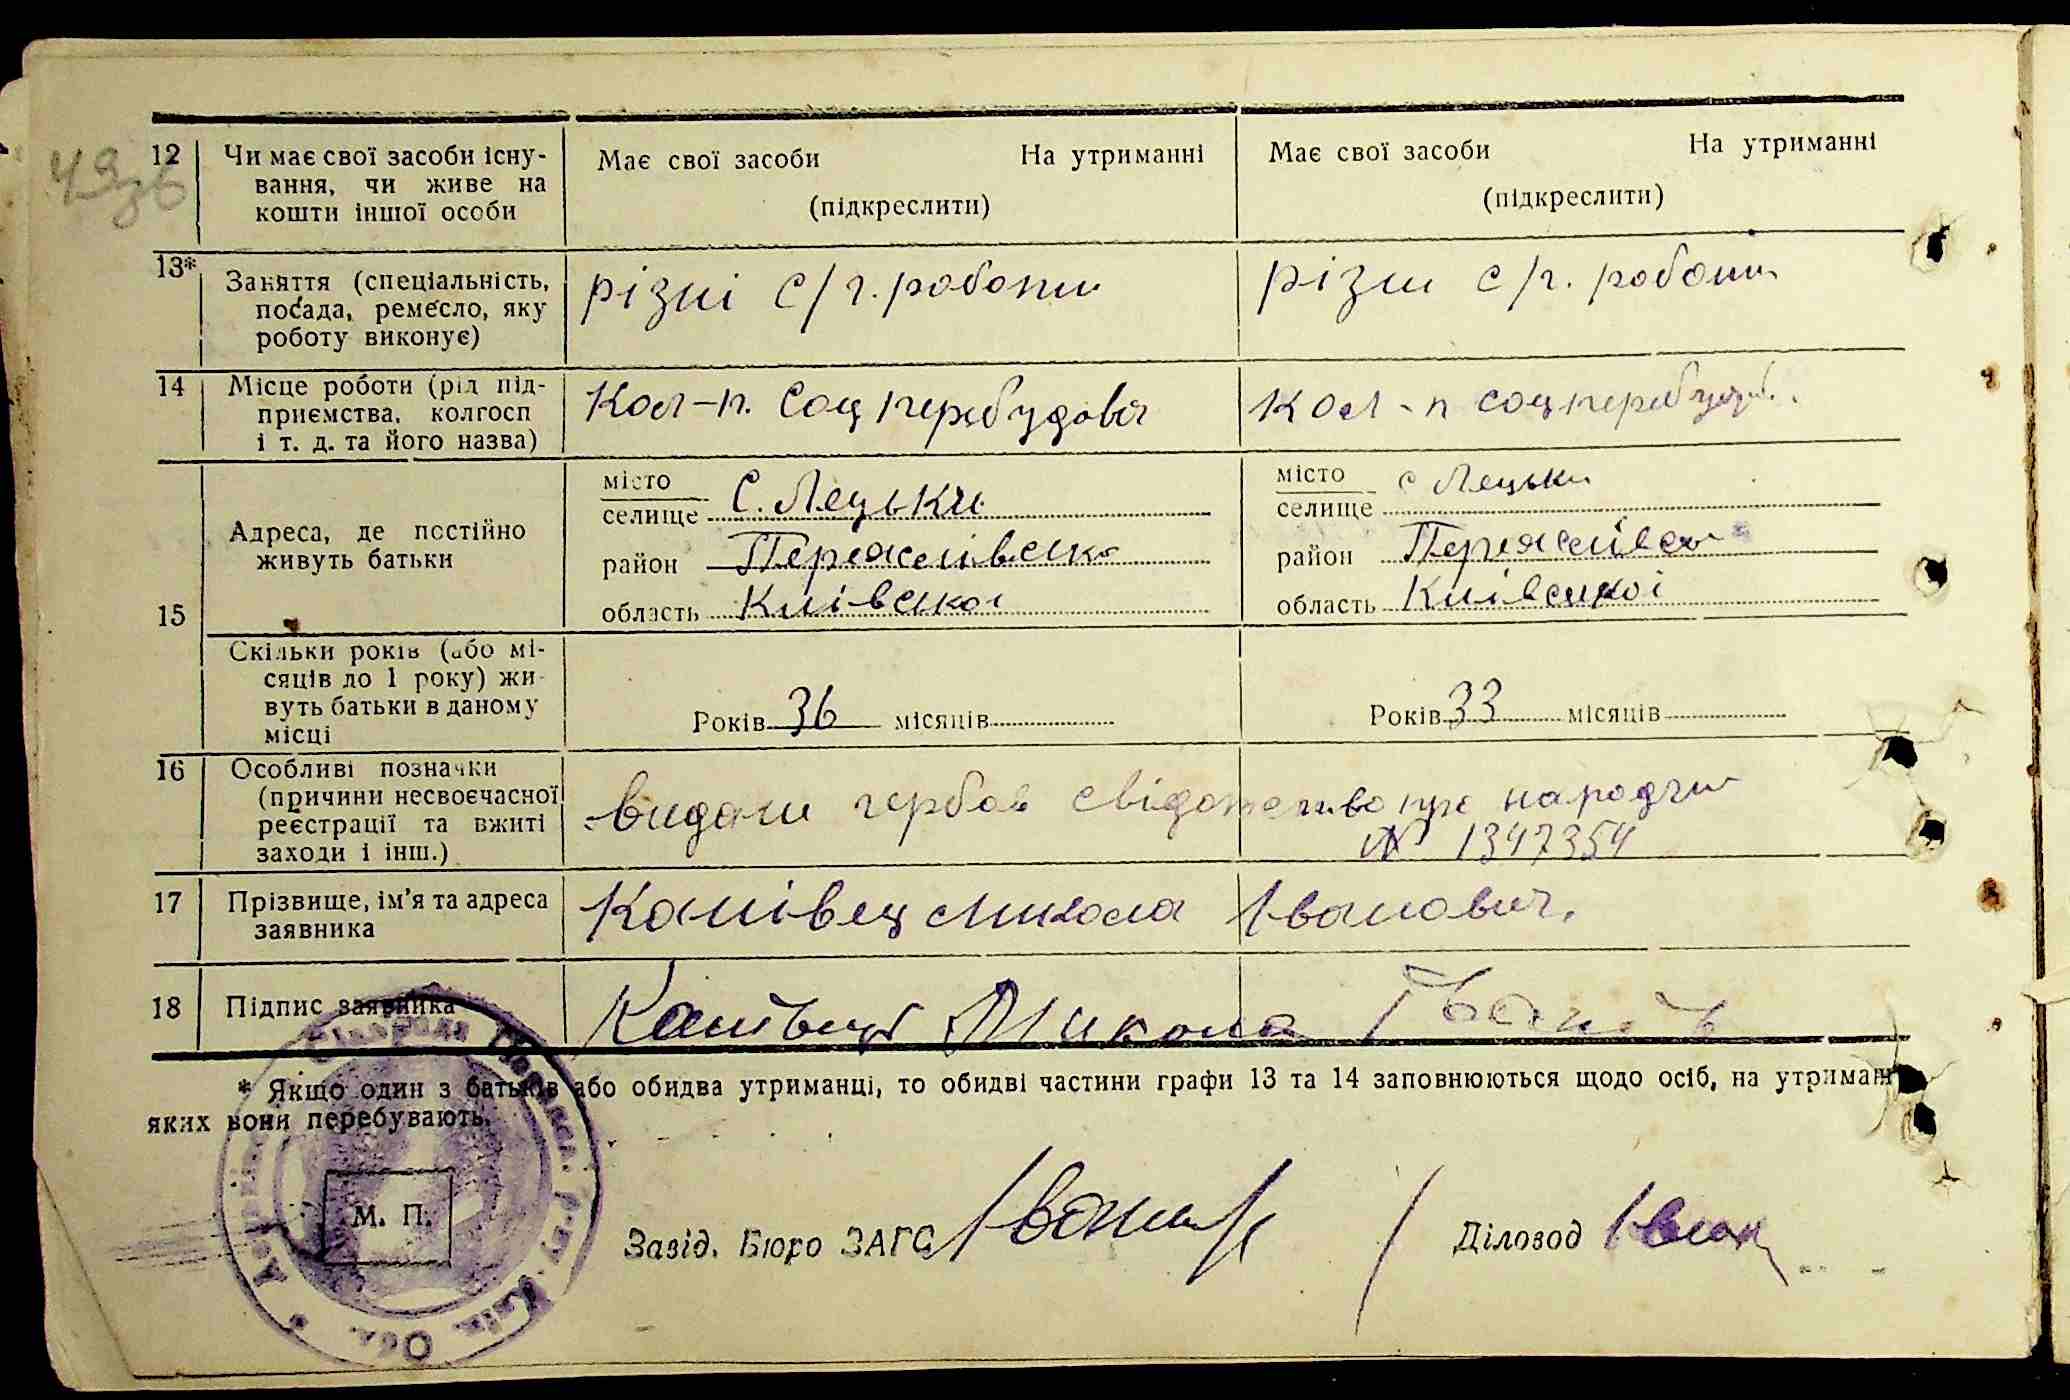 12 Чи має свої засоби існу-
вання, чи живе на
кошти іншої особи
Має свої засоби На утриманні
(підкреслити)
Має свої засоби На утриманні
(підкреслити)
13* Заняття (спеціальність,
посада, ремесло, яку
роботу виконує)
різні с/г. роботи
різні с/г. роботи
14 Місце роботи (рід під-
приємства, колгосп
і т. д. та його назва)
Кол-п. Соцперебудова
Кол-п соцперебудов.
15
Адреса, де постійно
живуть батьки
місто
селище С. Лецьки
район
область Київської
місто
селище с Лецьки
район
область Київської
Скільки років (або мі-
сяців до 1 року) жи-
вуть батьки в даному
місці
Років 36 місяців
Років 33 місяців
16 Особливі позначки
(причини несвоєчасної
реєстрації та вжиті
заходи і інш.)
видали гербов свідоцтво про народжен
№ 1347354
17 Прізвище, ім'я та адреса
заявника
Канівец Микола Іванович.
18 Підпис заявника
Канівець Микола
* Якщо один з батьків або обидва утриманці, то обидві частини графи 13 та 14 заповнюються щодо осіб, на утриман
яких вони перебувають.
М. П.
Завід. Бюро ЗАГС
Діловод
Київ. Обл.